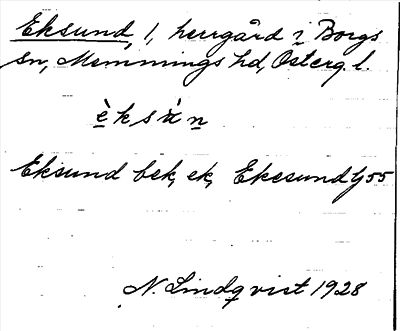 Eksund, 1, herrgård i Borgs
sn, Memmings hd, Österg. l.
èksun
Eksund bek, ek, Ekesund G55
N. Lindqvist 1928